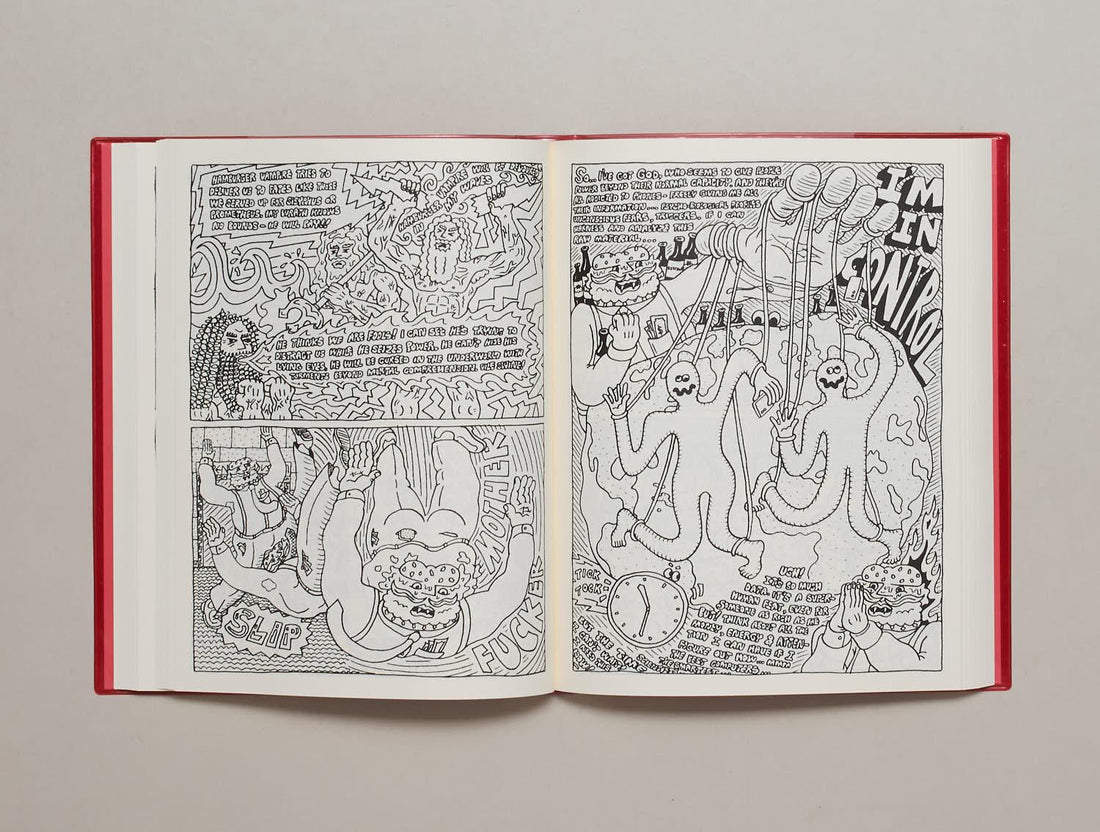 HAMBURGER VAMPIRE TRIES TO
DELIVER US TO FATES LIKE THOSE
WE SERVED UP FOR SISYPHUS OR
PROMETHEUS. MY WRATH KNOWS
NO BOUNDS - HE WILL PAY!!
HAMBURGER VAMPIRE WILL BE
IN WAVES
HE THINKS WE ARE FOOLS! I CAN SEE HE'S TRYING TO
DISTRACT US WHILE HE SEIZES POWER. HE CAN'T HIDE HIS
LYING EYES. HE WILL BE CURSED IN THE UNDERWORLD WITH
TORMENTS BEYOND MORTAL COMPREHENSION.
SLIP
MOTHER
FUCKER
SO... I'VE GOT GOD, WHO SEEMS TO GIVE PEOPLE
POWER BEYOND THEIR NORMAL CAPACITY, AND THEY'RE
ALL ADDICTED TO PHONES - FREELY GIVING ME ALL
THEIR INFORMATION... PSYCHOLOGICAL PROFILES
UNCONSCIOUS FEARS, TRIGGERS. IF I CAN
HARNESS AND ANALYZE THIS
RAW MATERIAL...
I'M
IN
CONTROL
TICK
TOCK
UGH!
IT'S SO MUCH
DATA. IT'S A SUPER-
HUMAN FEAT, EVEN FOR
SOMEONE AS RICH AS ME
BUT! THINK ABOUT ALL THE
MONEY, ENERGY & ATTEN-
TION I CAN HAVE IF I
FIGURE OUT HOW... MMM
THE BEST COMPUTERS